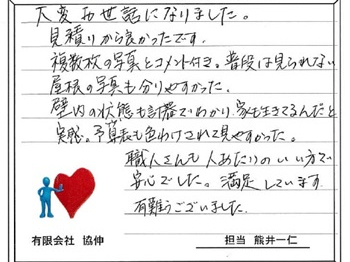 大変お世話になりました。
見積りから良かったです。
複数枚の写真とコメント付き。普段は見られない
屋根の写真も分りやすかった。
壁内の状態も計器でわかり、家も生きてるんだと
実感。予算表も色わけされて見やすかった。
職人さんも人あたりのいい方で
安心でした。満足しています。
有難うございました。
有限会社 協伸
担当 熊井一仁